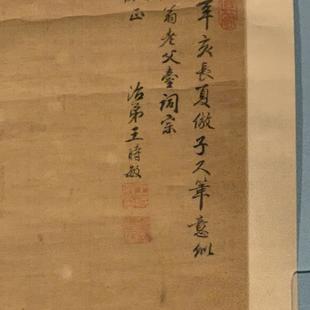 辛亥長夏倣子久筆意似
翁老父臺詞宗
正
治弟王時敏